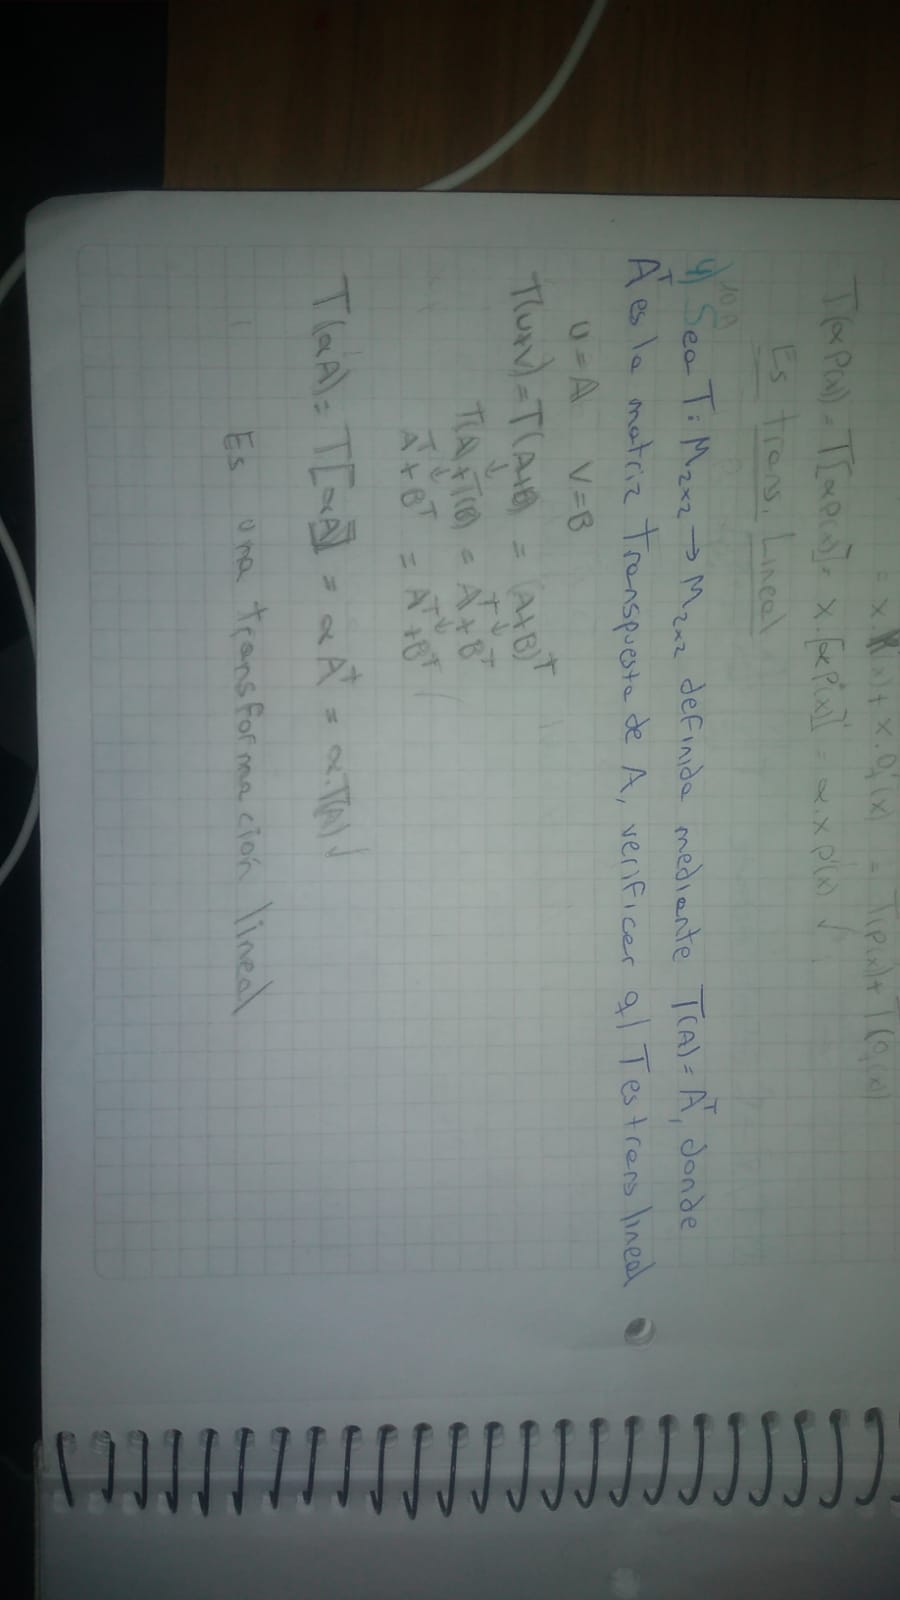 = x. (x) + x.Q'(x) = T(P(x)) + T(Q(x))
T(αP(x)) = T[αP(x)] = x.[αP'(x)] = α.x P'(x) √
Es trans. Lineal
4) Sea T: M₂ₓ₂ → M₂ₓ₂ definida mediante T(A) = Aᵀ, donde
Aᵀ es la matriz transpuesta de A, verificar q/ T es trans lineal
U = A V = B
T(U+V) = T(A+B) = (A+B)ᵀ
↓
T(A)+T(B) = Aᵀ+Bᵀ
↓ ↓
Aᵀ+Bᵀ = Aᵀ+Bᵀ
T(αA) = T[αA] = αAᵀ = α.T(A) √
Es una transformación lineal